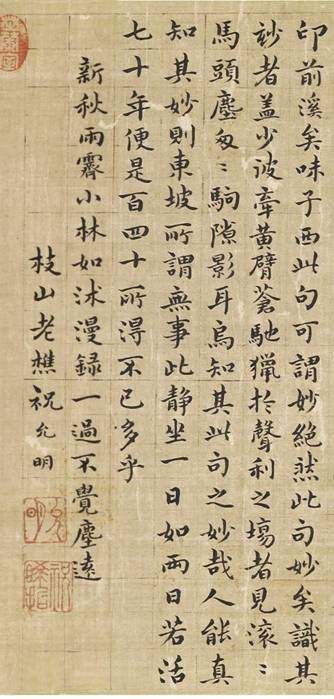 印前溪矣味子西此句可謂妙絕然此句妙矣識其
玅者盖少彼牽黃臂蒼馳獵扵聲利之場者見滚〻
馬頭塵匆〻駒隙影耳烏知其此句之妙哉人能真
知其妙則東坡所謂無事此静坐一日如兩日若活
七十年便是百四十所得不已多乎
新秋雨霽小林如沐漫録一過不覺塵遠
枝山老樵祝允明